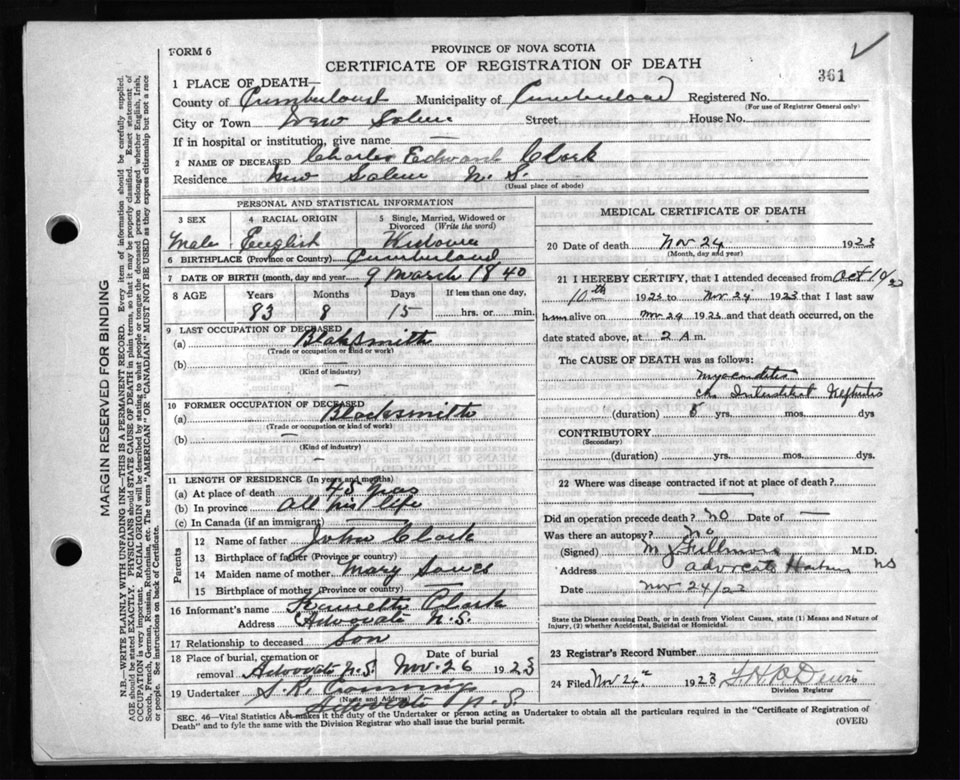 FORM 6
PROVINCE OF NOVA SCOTIA
CERTIFICATE OF REGISTRATION OF DEATH
361
1 PLACE OF DEATH—
County of Cumberland Municipality of Cumberland Registered No.
(For use of Registrar General only)
City or Town New Salem Street House No.
If in hospital or institution, give name —
2 NAME OF DECEASED Charles Edward Clark
Residence New Salem N.S.
(Usual place of abode)
PERSONAL AND STATISTICAL INFORMATION
3 SEX 4 RACIAL ORIGIN 5 Single, Married, Widowed or Divorced (Write the word)
Male English
6 BIRTHPLACE (Province or Country) Cumberland
7 DATE OF BIRTH (month, day and year) 9 March 1840
8 AGE Years Months Days If less than one day,
83 8 15 hrs. or min.
9 LAST OCCUPATION OF DECEASED
(a) Blaksmith
(Trade or occupation or kind or work)
(b)
(Kind of industry)
—
10 FORMER OCCUPATION OF DECEASED
(a) Blacksmith
(Trade or occupation or kind of work)
(b) —
(Kind of industry)
—
11 LENGTH OF RESIDENCE (In years and months)
(a) At place of death 45 yrs
(b) In province All his life
(c) In Canada (if an immigrant) —
Parents
12 Name of father John Clark
13 Birthplace of father (Province or country)
14 Maiden name of mother Mary
15 Birthplace of mother (Province or country) —
16 Informant's name Kenneth Clark
Address Advocate N.S.
17 Relationship to deceased Son
18 Place of burial, cremation or removal Advocate N.S. Date of burial Nov. 26 1923
19 Undertaker S. R.
(Name and Address)
Advocate N.S.
MEDICAL CERTIFICATE OF DEATH
20 Date of death Nov 24 1923
(Month, day and year)
21 I HEREBY CERTIFY, that I attended deceased from Oct
10th 1923 to Nov 24 1923 that I last saw
him alive on Nov 24 1923 and that death occurred, on
date stated above, at 2 A.m.
The CAUSE OF DEATH was as follows:
Myocarditis
ch. Interstitial Nephritis
(duration) 5 yrs. mos. dys
CONTRIBUTORY
(Secondary)
(duration) yrs. mos. dys.
22 Where was disease contracted if not at place of death?
—
Did an operation precede death? NO Date of —
Was there an autopsy? No
(Signed) M.D.
Address Advocate Harbour NS
Date Nov 24/23
State the Disease causing Death, or in death from Violent Causes, state (1) Means and Nature of Injury, (2) whether Accidental, Suicidal or Homicidal.
23 Registrar's Record Number
24 Filed Nov 24 1923
Division Registrar
SEC. 46—Vital Statistics Act makes it the duty of the Undertaker or person acting as Undertaker to obtain all the particulars required in the "Certificate of Registration of
Death" and to fyle the same with the Division Registrar who shall issue the burial permit.
(OVER)
MARGIN RESERVED FOR BINDING
N.B.—WRITE PLAINLY WITH UNFADING INK—THIS IS A PERMANENT RECORD. Every item of information should be carefully supplied.
AGE should be stated EXACTLY. PHYSICIANS should STATE CAUSE OF DEATH in plain terms, so that it may be properly classified. Exact statement of
OCCUPATION is very important. RACIAL ORIGIN will be described by stating to what people or tongue the deceased person belonged whether English, Irish,
Scotch, French, German, Russian, Ruthenian, etc. The terms "AMERICAN" OR "CANADIAN" MUST NOT BE USED as they express citizenship but not a race
or people. See instructions on back of Certificate.